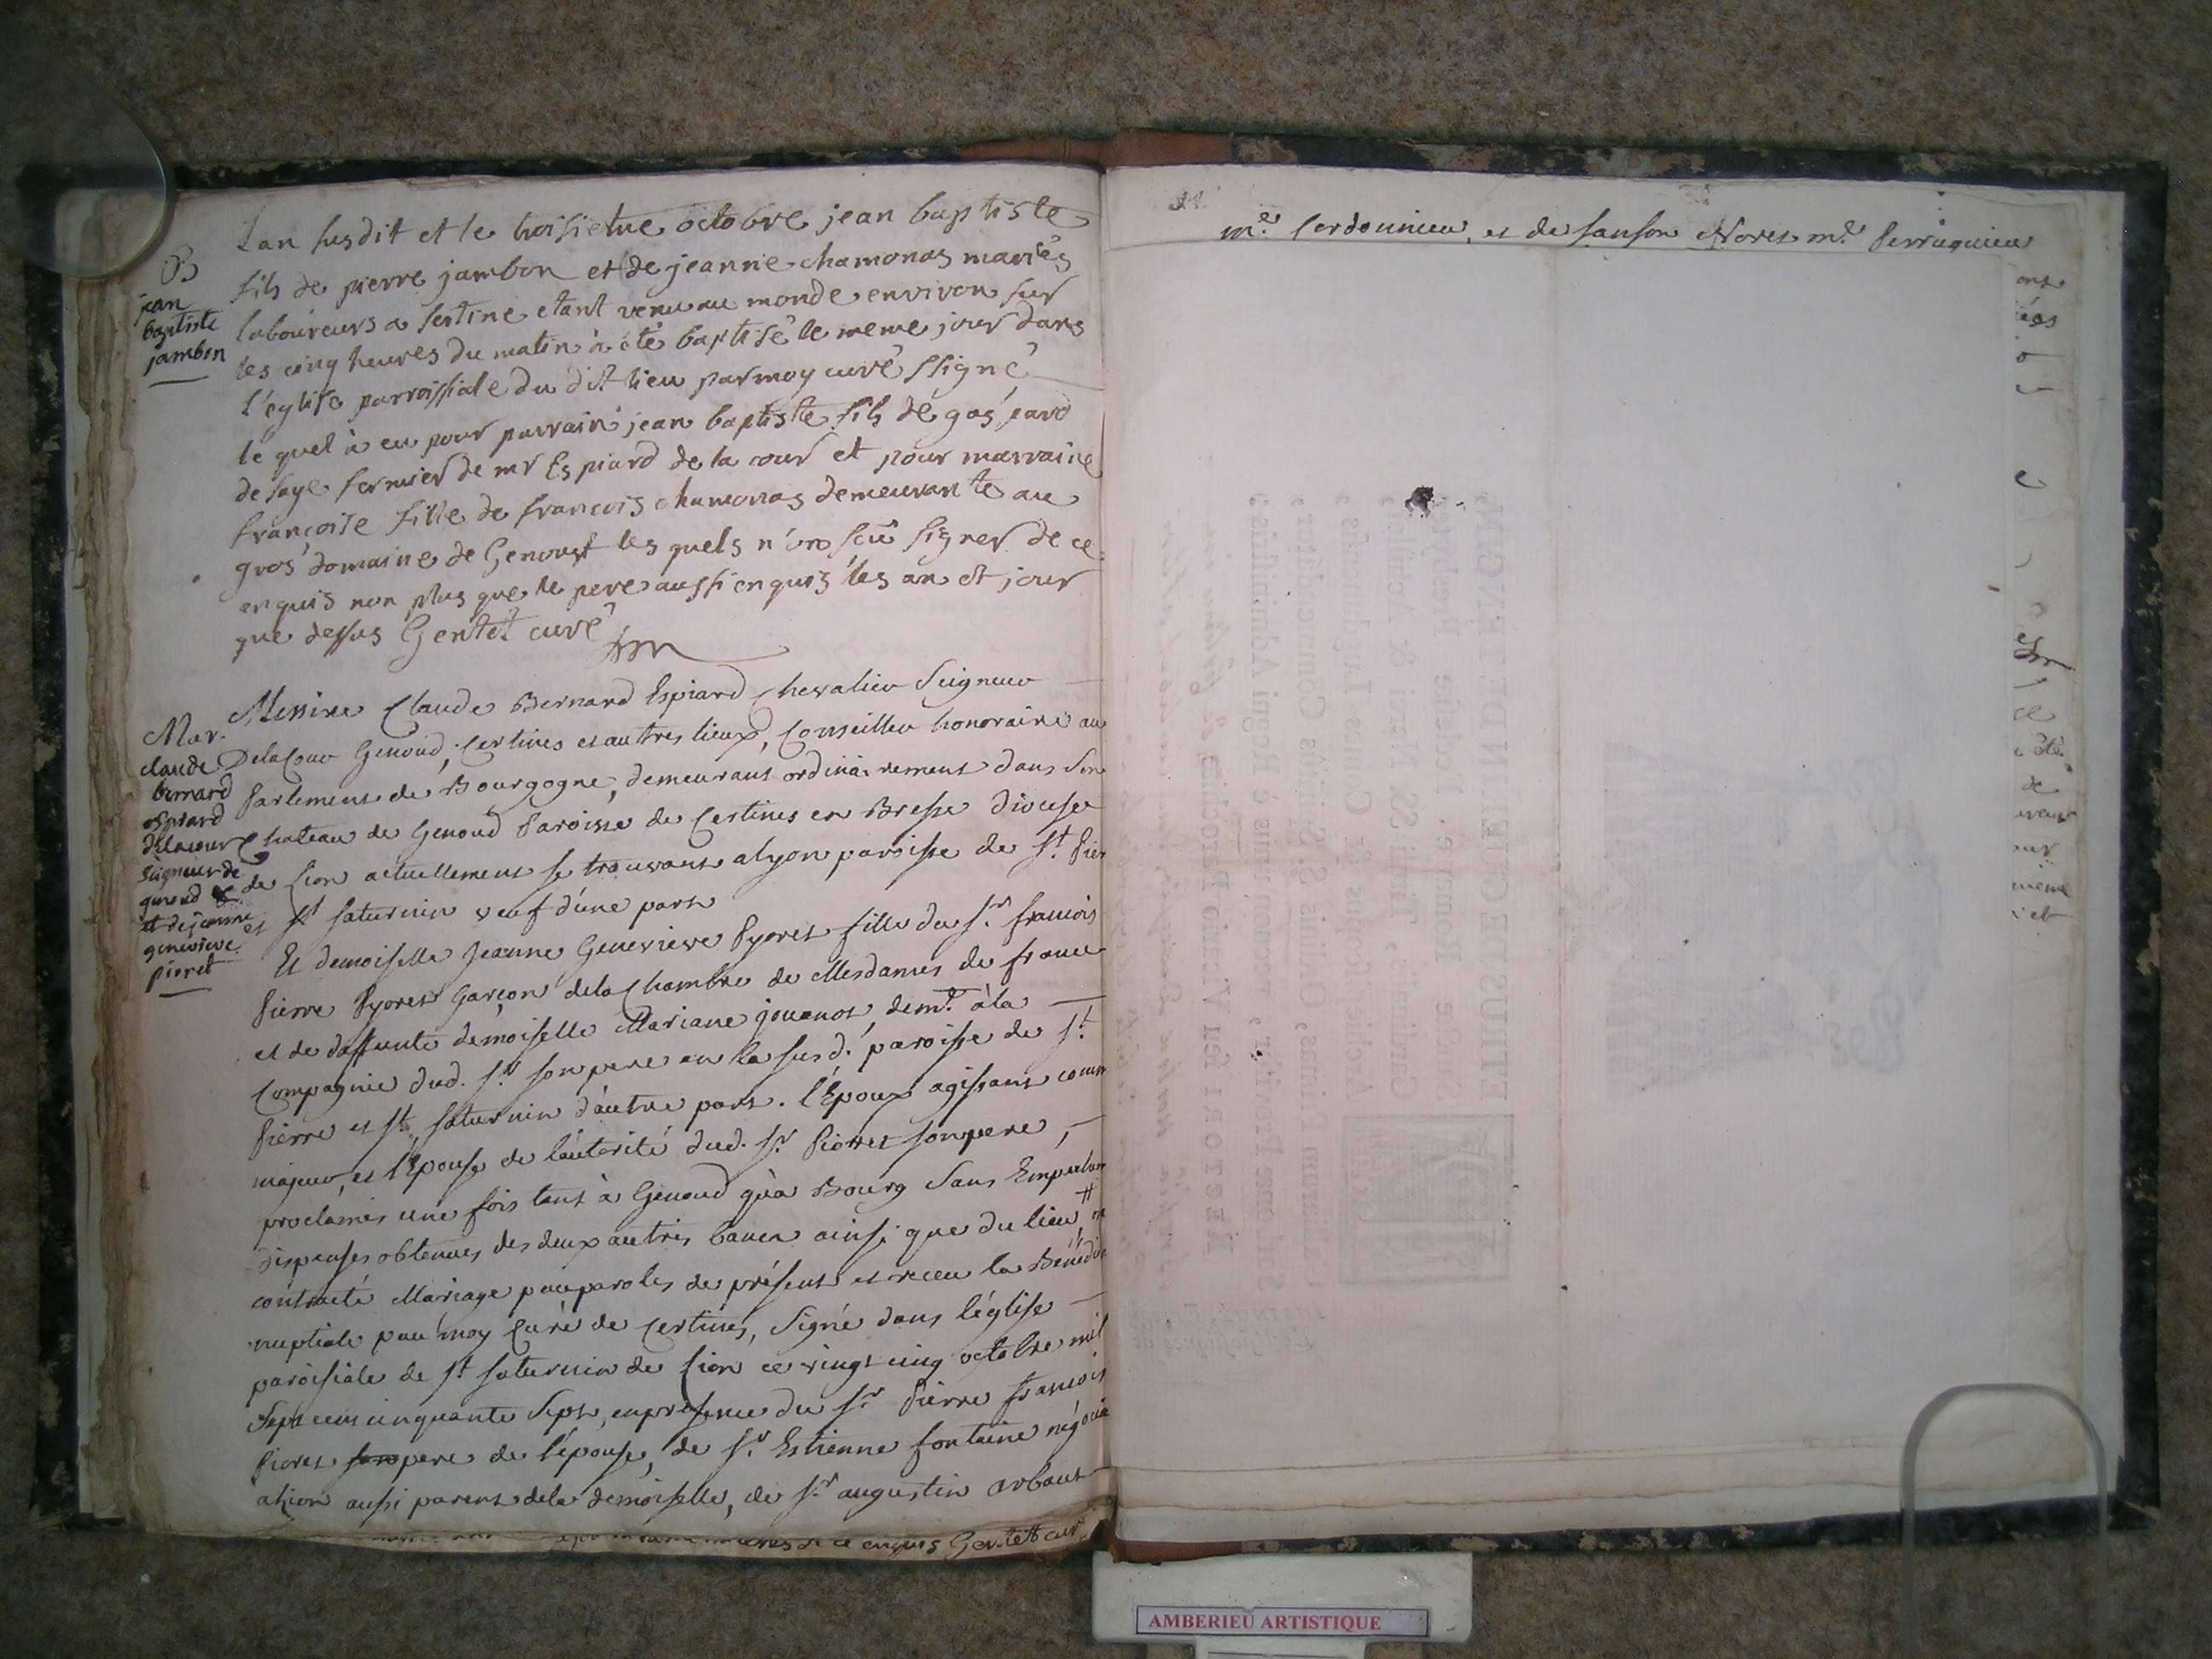 B
jean
baptiste
jambon
Lan susdit et le troisieme octobre jean baptiste
fils de pierre jambon et de jeanne chamonas mariés
laboureurs a sertine etant venu au monde environ sur
les cinq heures du matin à été baptisé le meme jour dans
l'eglise parroissiale du dit lieu par moy curé ssigné
le quel à eu pour parrain jean baptiste fils de gaspard
de faye fermier de mr Espiard de la cour et pour marraine
françoise fille de francois chamonas demeurante au
gros domaine de Genoust les quels n'on sçû signer de ce
enquis non plus que le pere aussi enquis les an et jour
que dessus Gentet curé
Mar.
claude
bernard
espiard
delacour
seigneur de
genoud &
et de jeanne
genevieve
pioret
Messire Claude Bernard Espiard Chevalier Seigneur
De la Cour Genoud, Certines et autres lieux, Conseiller honoraire au
Parlement de Bourgogne, demeurant ordinairement dans son
Chateau de Genoud Paroisse de Certines en Bresse diocese
de Lion actuellement se trouvant a lyon paroisse de St. Pier
et St saturnin veuf d'une part
Et demoiselle Jeanne Genevieve Pyoret fille du Sr. francois
Pierre Pyoret Garçon de la Chambre de Mesdames de france
et de deffunte demoiselle Mariane jouanot, demte. à la
Compagnie dud. Sr. son pere en la susd. paroisse de St.
Pierre et St. saturnin d'autre part. l'Epoux agissant comm
majeur, et l'Epouse de l'autorité dud. Sr. Piorret son pere,
proclamés une fois tant à Genoud qu'a Bourg sans
dispenses obtenues des deux autres bancs ainsi que du lieu,
contracté Mariage par paroles de présent et receu la Bénédic
nuptiale par moy Curé de Certines, signé dans l'église
paroisiale de St saturnin de Lion ce vingt cinq octobre mil
Sept cens cinquante Sept, en presence du Sr. Pierre francois
Pioret son pere de l'épouse, de Sr. Estienne fontaine négocia
a Lion aussi parent de la demoiselle, de Sr. augustin arbaut
enquis Gentet curé
me. Cordonnier, et de sanson Noret me. Perruquier
AMBERIEU ARTISTIQUE